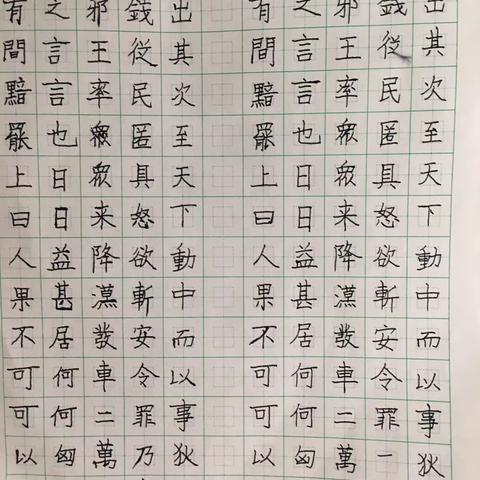 出其次至天下動中而以事狄
錢従民匿具怒欲斬安令罪一
邪王率眾眾来降漢發車二萬
之言言也日日益甚居何何匈
有間黯罷上曰人果不可可以
出其次至天下動中而以事狄
錢従民匿具怒欲斬安令罪乃
邪王率眾眾来降漢發車二萬
之言言也日日益甚居何何匈
有間黯罷上曰人果不可可以